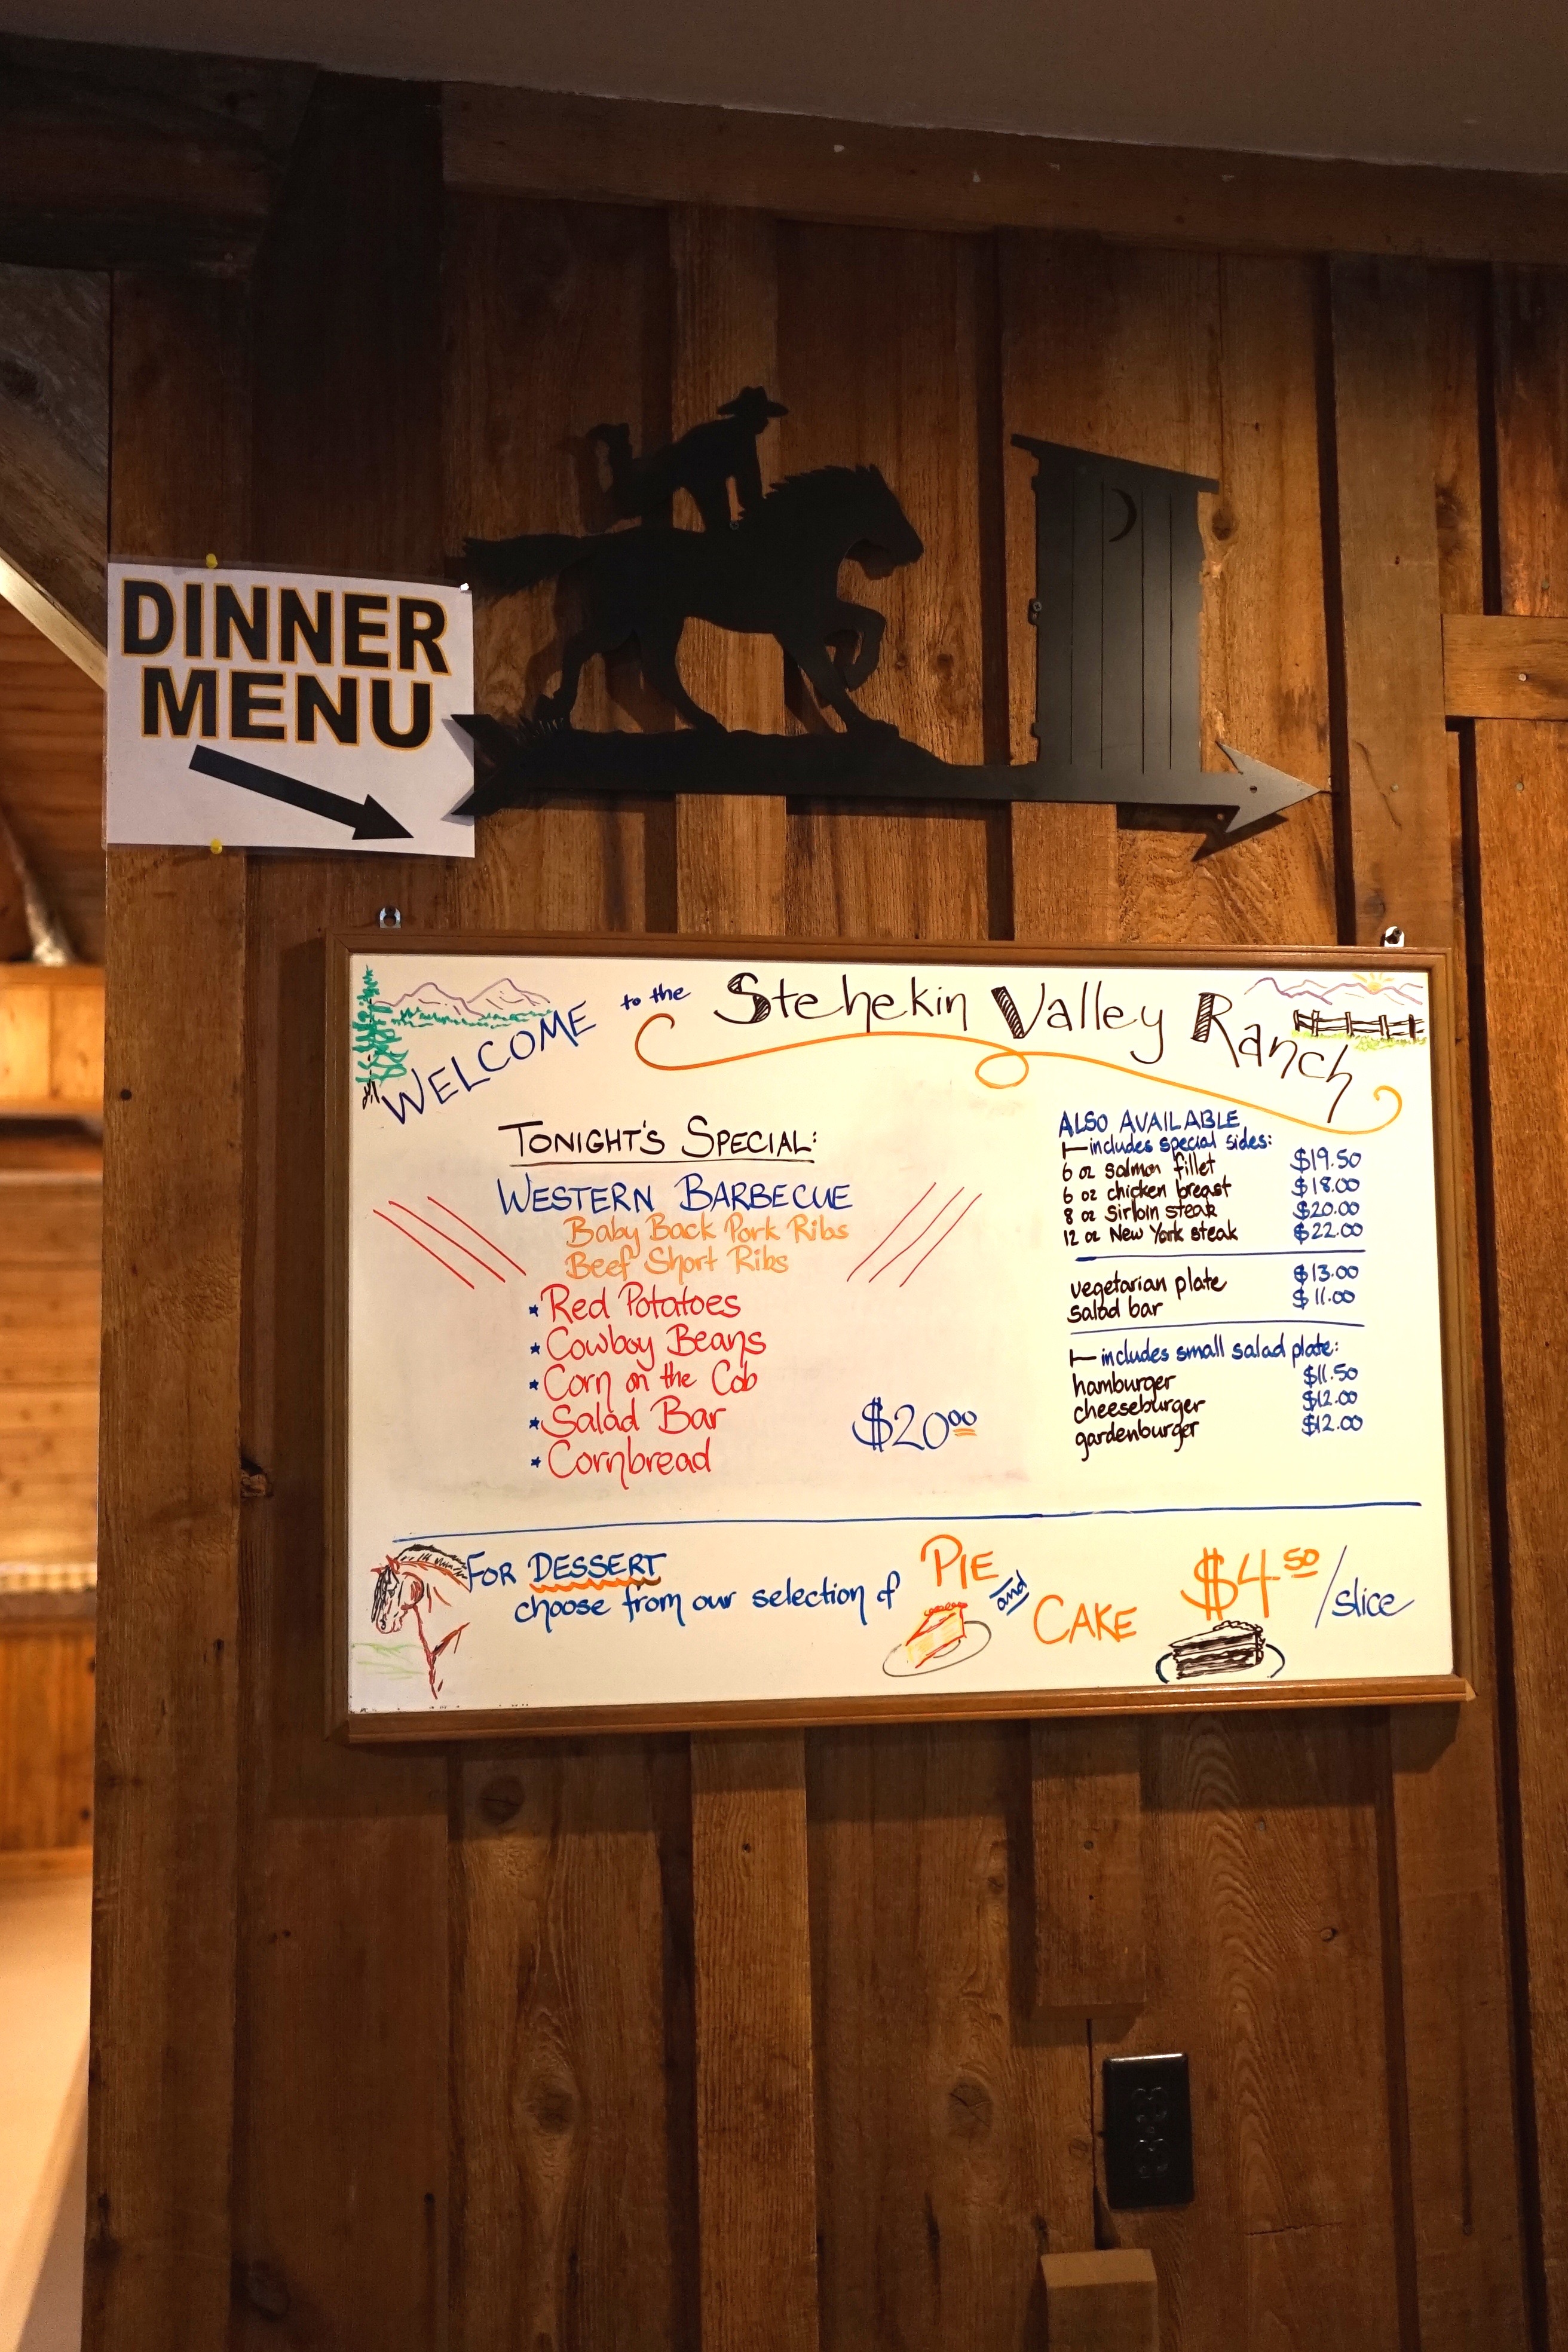 DINNER
MENU
WELCOME to the Stehekin Valley Ranch
TONIGHT'S SPECIAL:
WESTERN BARBECUE
Baby Back Pork Ribs
Beef Short Ribs
* Red Potatoes
* Cowboy Beans
* Corn on the Cob
* Salad Bar
* Cornbread
$20.00
ALSO AVAILABLE
includes special sides:
6 oz salmon fillet $19.50
6 oz chicken breast $18.00
8 oz sirloin steak $20.00
12 oz New York steak $22.00
vegetarian plate $13.00
salad bar $11.00
includes small salad plate:
hamburger $11.50
cheeseburger $12.00
gardenburger $12.00
FOR DESSERT
choose from our selection of PIE and CAKE $4.50/slice